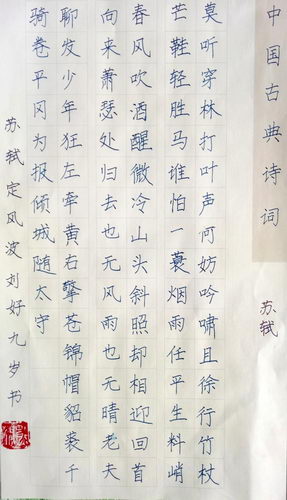 中国古典诗词
苏轼
莫听穿林打叶声何妨吟啸且徐行竹杖
芒鞋轻胜马谁怕一蓑烟雨任平生料峭
春风吹酒醒微冷山头斜照却相迎回首
向来萧瑟处归去也无风雨也无晴老夫
聊发少年狂左牵黄右擎苍锦帽貂裘千
骑卷平冈为报倾城随太守
苏轼定风波刘好九岁书